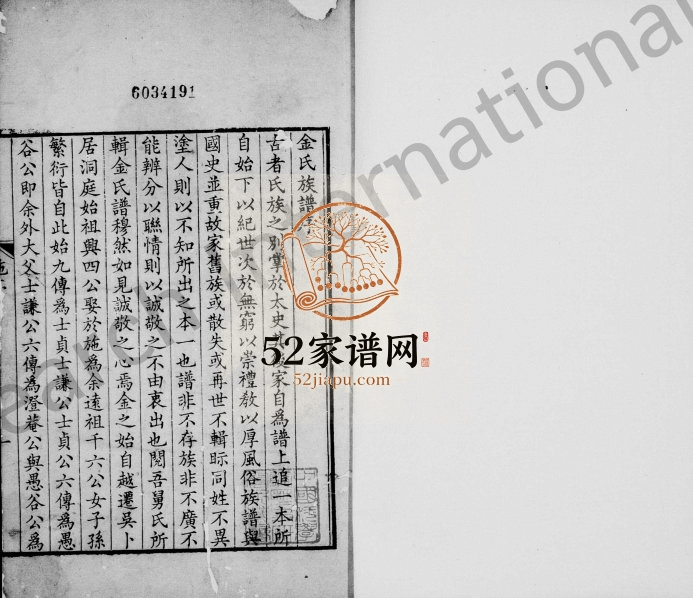 6034191
金氏族譜
古者氏族之別掌於太史其
家自為譜上追一本所
自始下以紀世次於無窮以崇禮教以厚風俗族譜與
國史並重故家舊族或散失或再世不輯眎同姓不異
塗人則以不知所出之本一也譜非不存族非不廣不
能辨分以聯情則以誠敬之不由衷出也閱吾舅氏所
輯金氏譜穆然如見誠敬之心焉金之始自越遷吳卜
居洞庭始祖興四公娶於施為余遠祖千六公女子孫
繁衍皆自此始九傳為士貞士謙公士貞公六傳為愚
谷公即余外大父士謙公六傳為澄菴公與愚谷公為
52家谱网
52jiapu.com
earch International